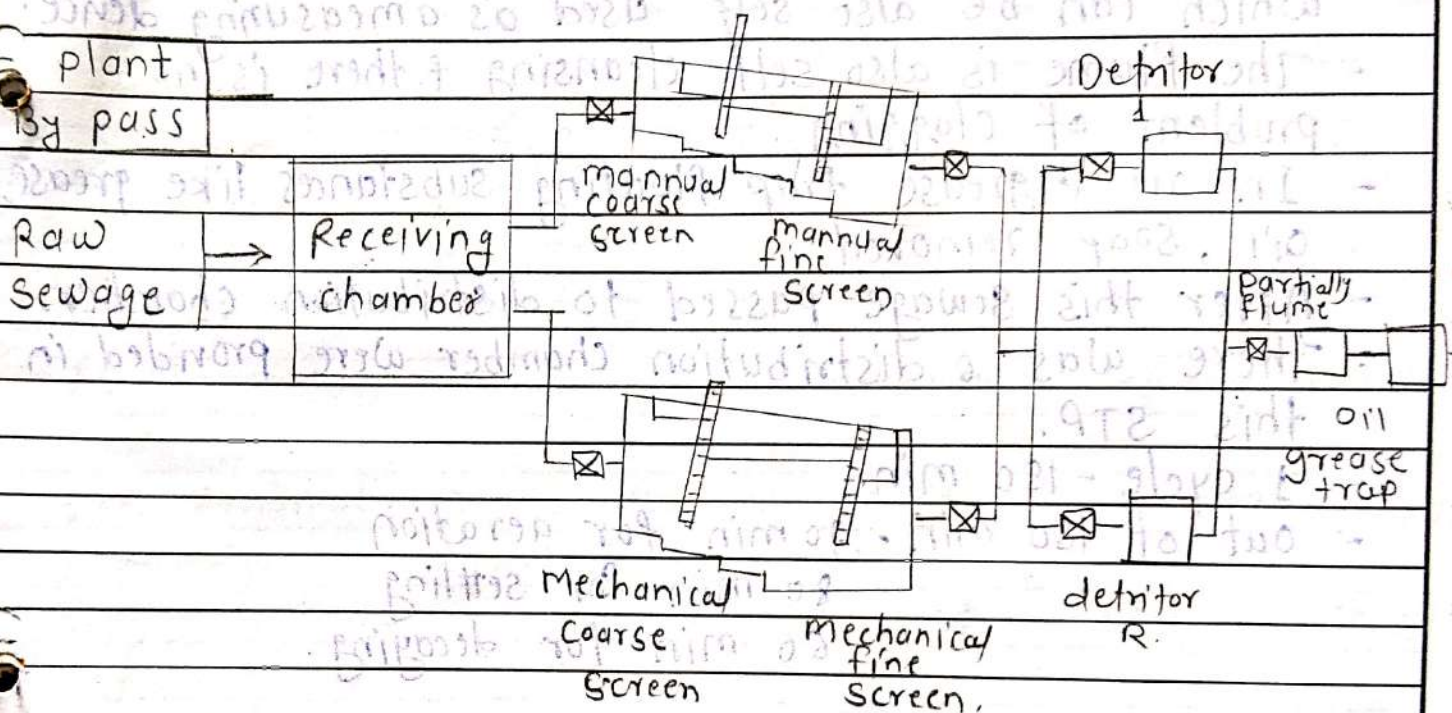 plant
By pass
Raw
Sewage
Receiving
chamber
mannual
coarse
screen
mannual
fine
screen
Detritor
1
partially
flume
oil
grease
trap
Mechanical
coarse
screen
Mechanical
fine
screen.
detritor
R.